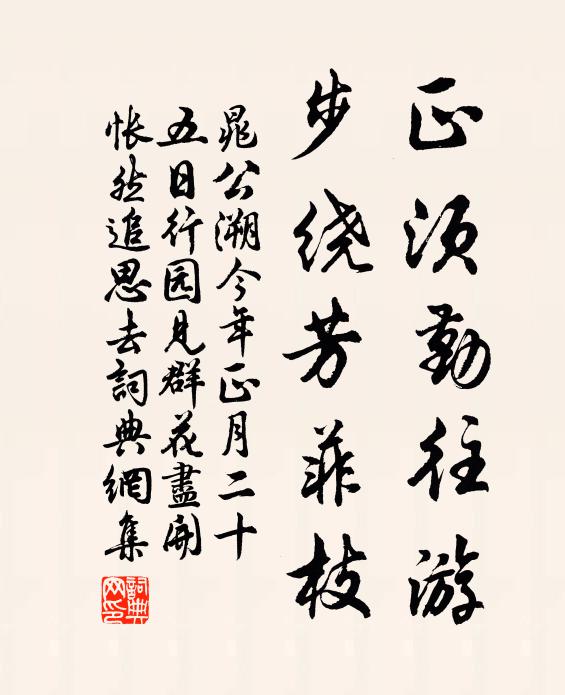 正须勤往游
步绕芳菲枝
晁公溯今年正月二十
五日行园见群花盡開
怅然追思去詞典網集
詞典網印